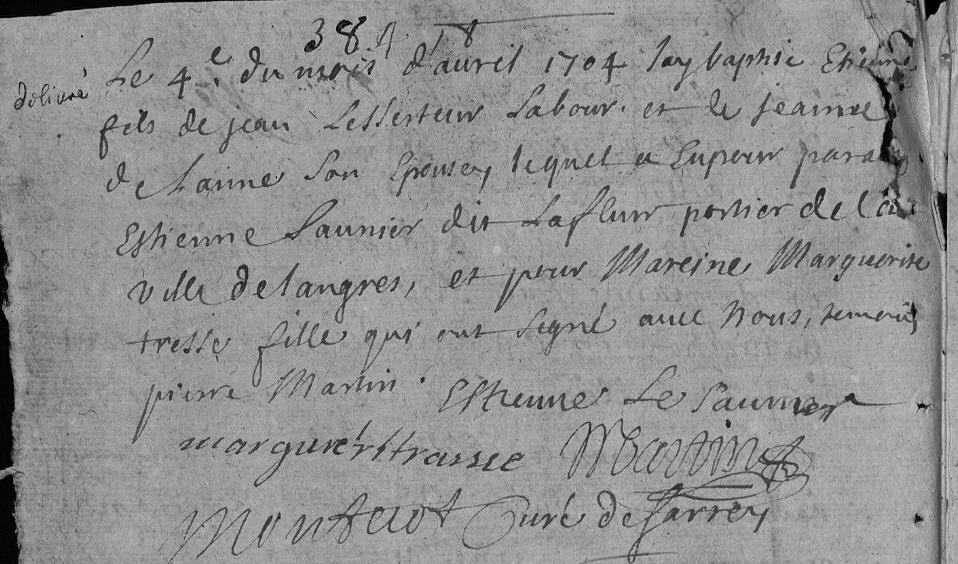 38
delivré
Le 4e du mois d'auril 1704 Jay baptise Etienne
fils de jean Lesserteur Labour. et de jeanne
de son Epouse, lequel a Eu pour parain
Estienne Saunier dit Lafleur portier de la
ville de langres, et pour Mareine Marguerite
tresse fille qui ont signé auec Nous, temoin
pierre Martin. Estienne Le Saunier
Martin
Curé de Sarrey